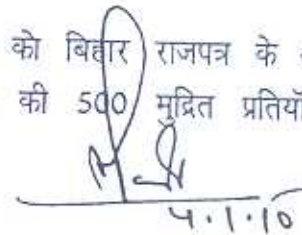 को बिहार राजपत्र के
की 500 मुद्रित प्रतियाँ
4.1.10